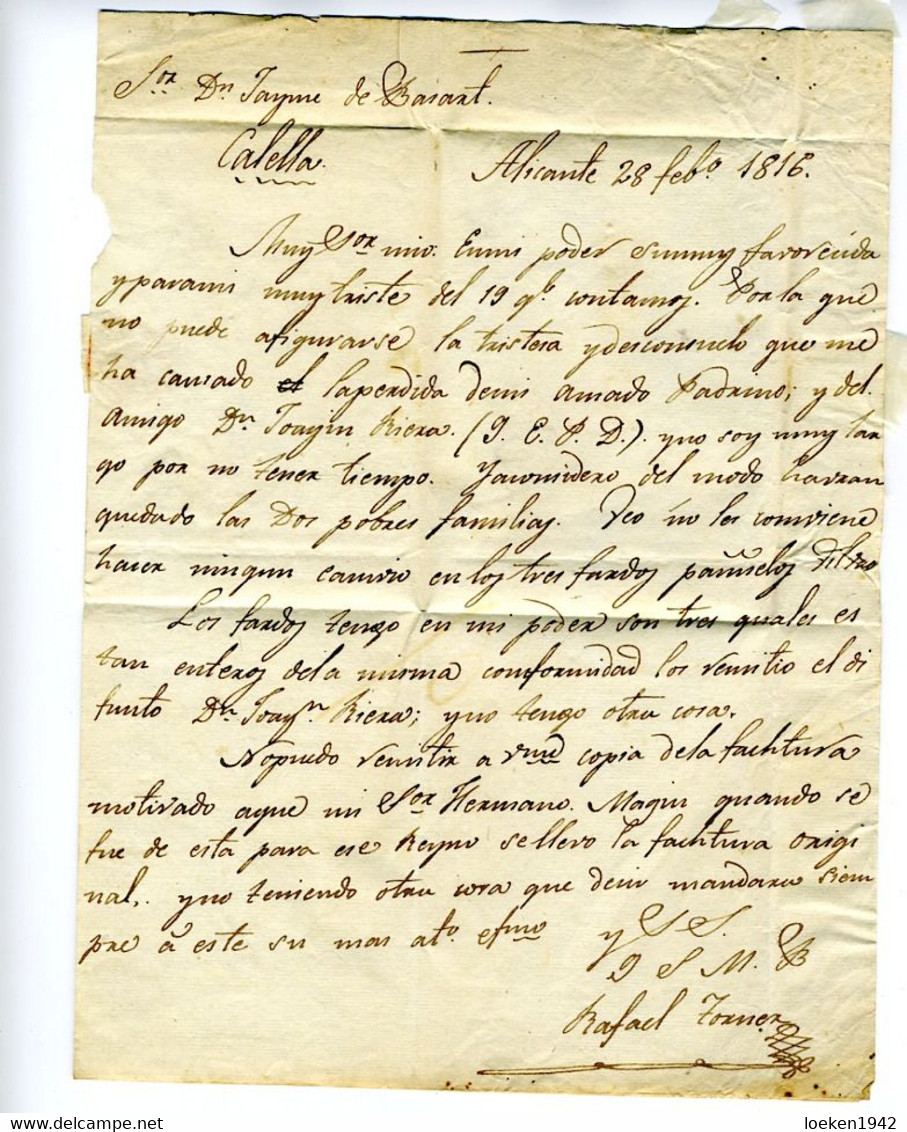 Sor. Dn Jayme de Basart.
Calella.
Alicante 28 febo. 1816.
Muy Sor mio. En mi poder su muy favorecida
y para mi muy triste del 19 qe. contamos. Por la que
no puede afigurarse la tristesa y desconsuelo que me
ha causado el la perdida de mi amado Padrino; y del
Amigo Dn Joaqin Riera. (Q. E. P. D.). y no soy muy lar
go por no tener tiempo. Ya considero del modo havran
quedado las Dos pobres familias. Veo no les conviene
hacer ningun camvio en los tres fardos pañuelos
Los fardos tengo en mi poder son tres quales es
tan enteros de la misma conformidad los remitio el di
funto Dn. Joaqn. Riera; y no tengo otra cosa.
No puedo remitir a vmd copia de la fachtura
motivado a que mi Sor Hermano. Magin quando se
fue de esta para ese Reyno se llevo la fachtura origi
nal,. y no teniendo otra cosa que decir mandara siem
pre à este su mas ato. efmo y S. S.
Q S M. B
Rafael Torner
loeken1942